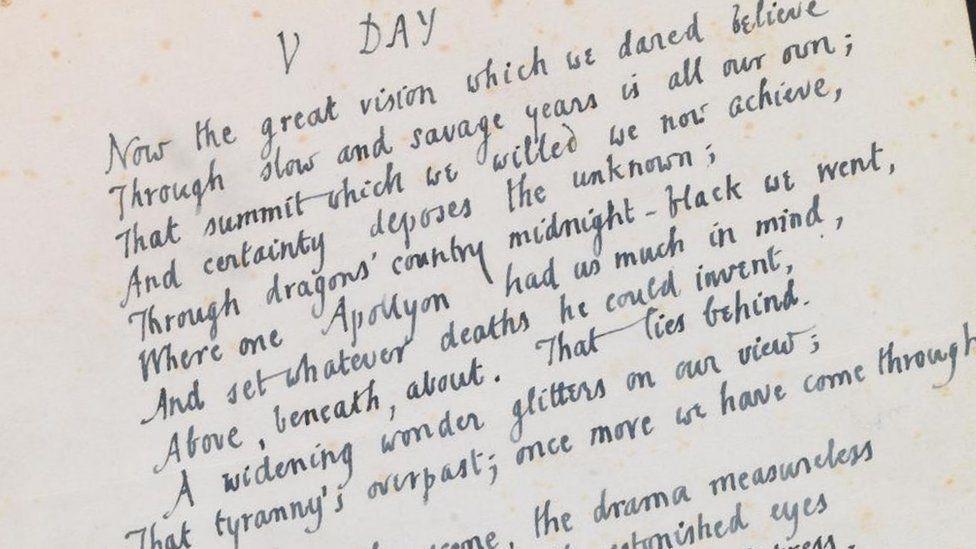 V DAY
Now the great vision which we dared believe
Through slow and savage years is all our own;
That summit which we willed we now achieve,
And certainty deposes the unknown;
Through dragons' country midnight-black we went,
Where one Apollyon had us much in mind,
And set whatever deaths he could invent,
Above, beneath, about. That lies behind.
A widening wonder glitters on our view;
That tyranny's overpast; once more we have come through
the drama measureless
astonished eyes